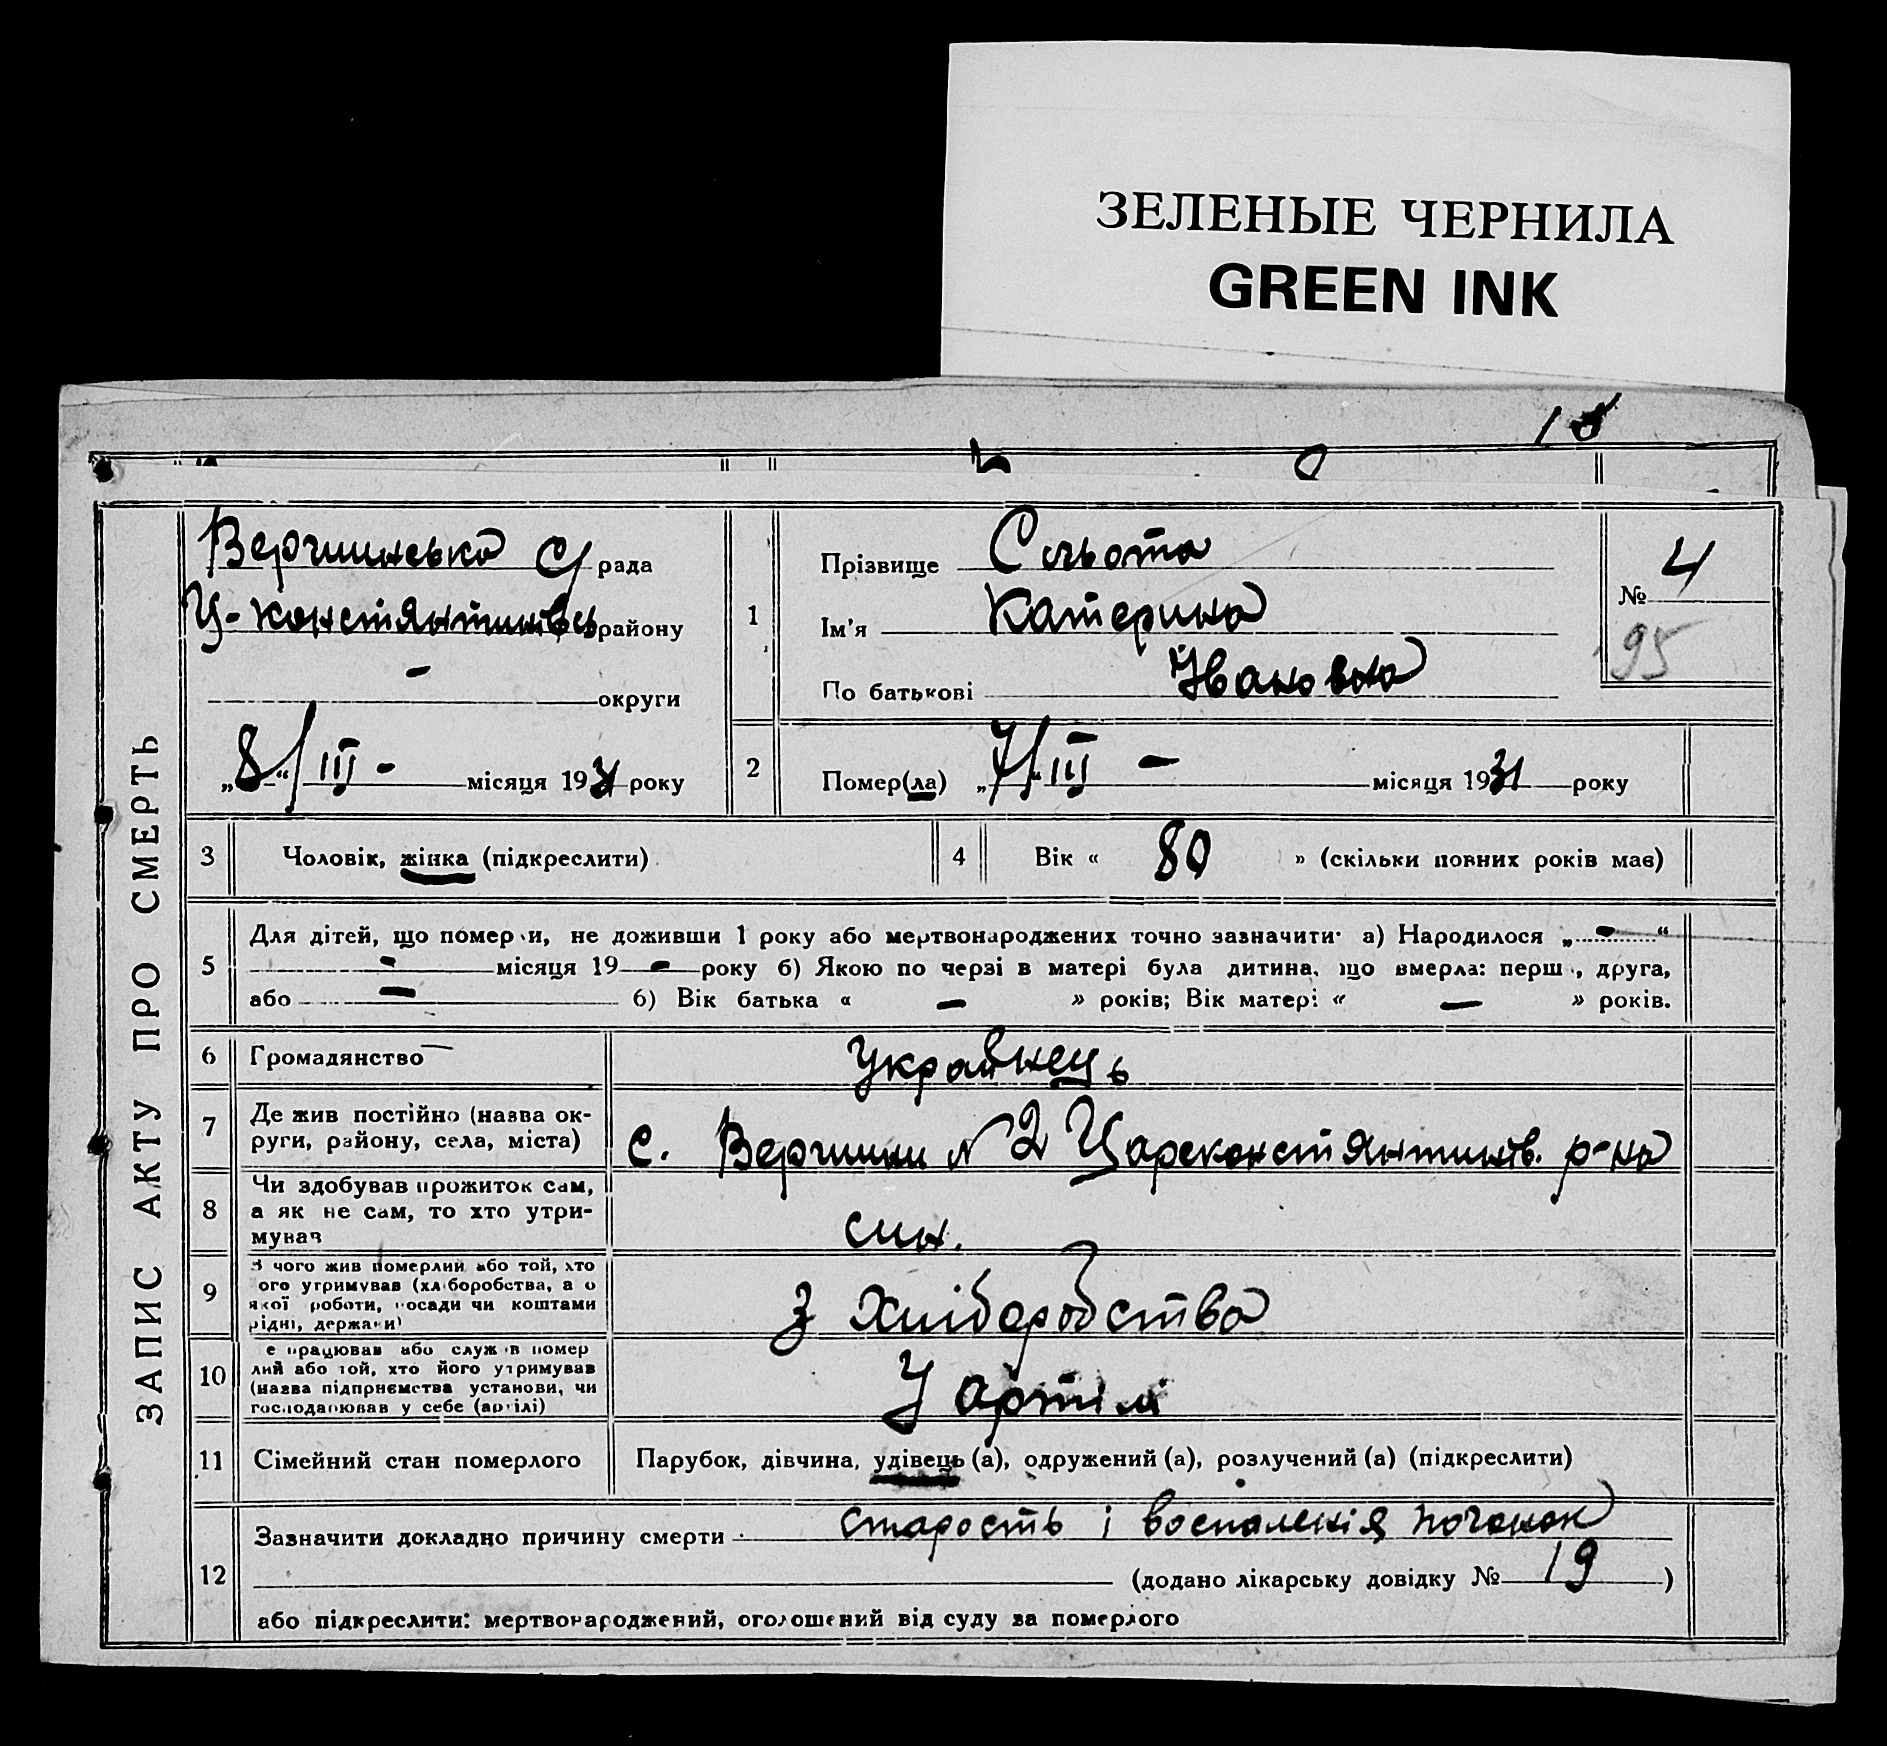 ЗЕЛЕНЫЕ ЧЕРНИЛА
GREEN INK
ЗАПИС АКТУ ПРО СМЕРТЬ
Вершинська С/рада
Ц-Констянтинівсь району
- округи
„8“/III - місяця 1931 року
1
Прізвище Сльота
Ім'я Катерина
По батькові Йвановна
№ 4
95
2
Помер(ла) „7/“ III - місяця 1931 року
3 Чоловік, жінка (підкреслити)
4 Вік « 80 » (скільки повних років має)
5 Для дітей, що померли, не доживши 1 року або мертвонароджених точно зазначити: а) Народилося „ - “
- місяця 19 - року б) Якою по черзі в матері була дитина, що вмерла: перша, друга,
або - б) Вік батька « - » років; Вік матері « - » років.
6 Громадянство Українець
7 Де жив постійно (назва ок-
руги, району, села, міста)
с. Вершини № 2 Цареконстянтинів. р-на
8 Чи здобував прожиток сам,
а як не сам, то хто утри-
мував
син.
9 З чого жив померлий або той, хто
його утримував (хліборобства, а о
якої роботи, посади чи коштами
рідні, держави)
З Хліборобства
10 Де працював або служив помер
лий або той, хто його утримував
(назва підприємства установи, чи
господарював у себе (артілі)
У артілі
11 Сімейний стан померлого
Парубок, дівчина, удівець (а), одружений (а), розлучений (а) (підкреслити)
12 Зазначити докладно причину смерти старость і воспаленія почонок
(додано лікарську довідку № 19 )
або підкреслити: мертвонароджений, оголошений від суду за померлого